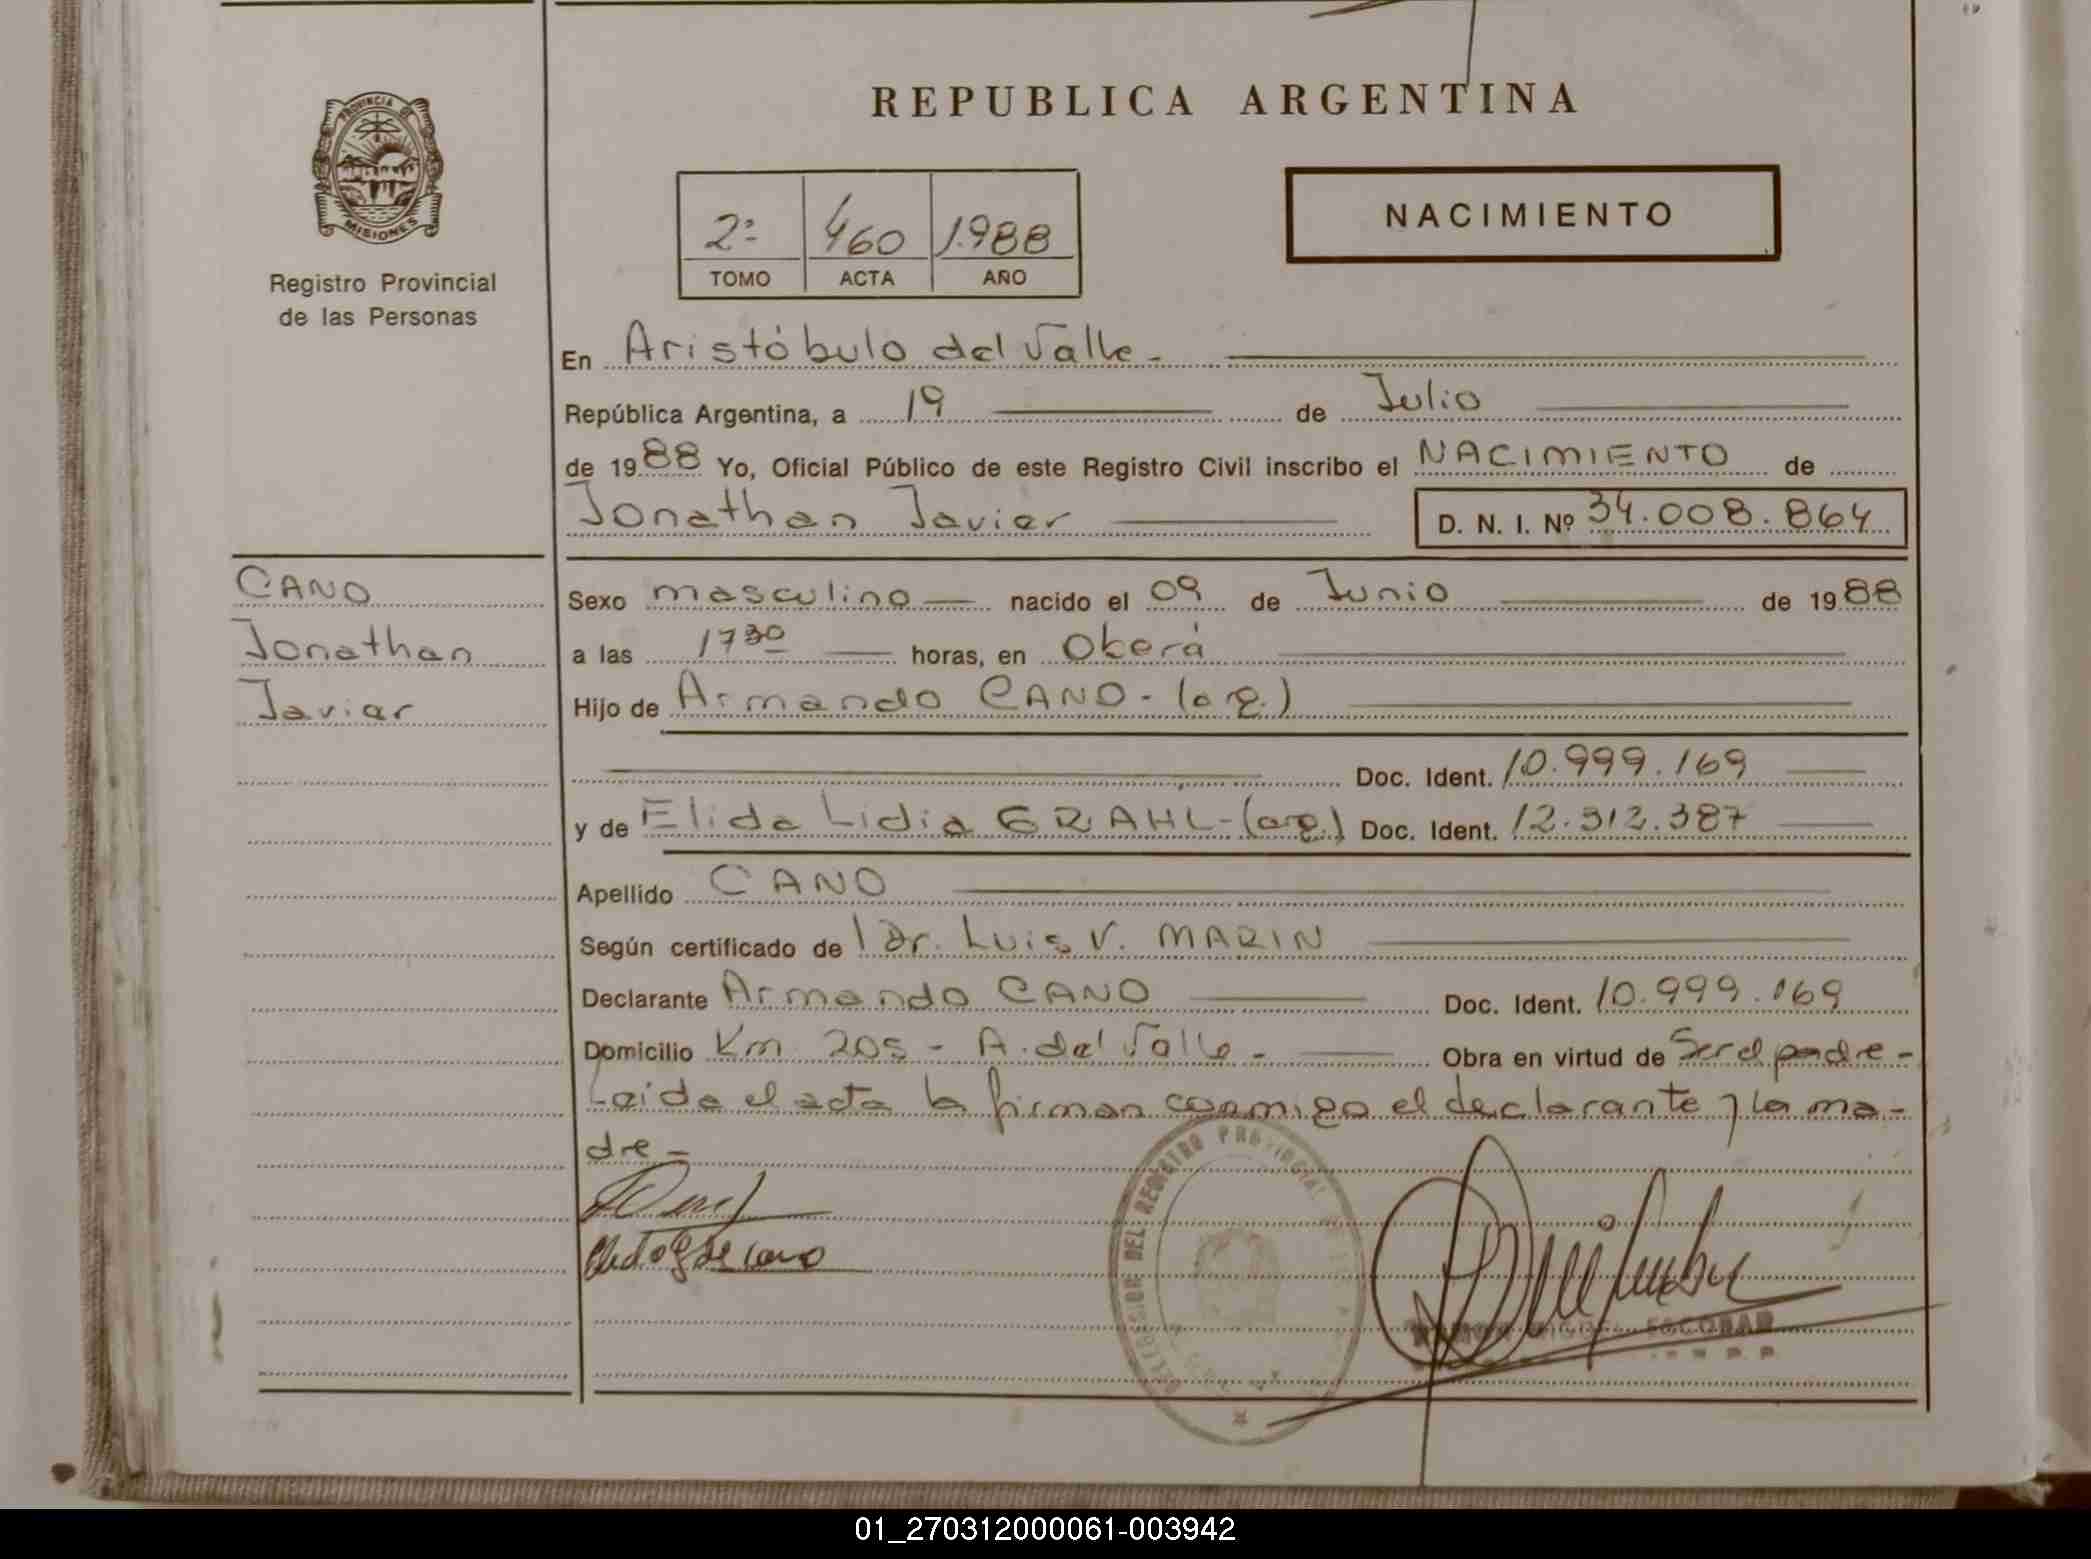 REPUBLICA ARGENTINA
PROVINCIA DE
MISIONES
Registro Provincial
de las Personas
2º 460 1.988
TOMO ACTA AÑO
NACIMIENTO
En Aristóbulo del Valle -
República Argentina, a 19 de Julio
de 1988 Yo, Oficial Público de este Registro Civil inscribo el NACIMIENTO de
Jonathan Javier D. N. I. Nº 34.008.864
CANO
Jonathan
Javier
Sexo masculino nacido el 09 de Junio de 1988
a las 1730 horas, en Oberá
Hijo de Armando CANO - (arg.)
Doc. Ident. 10.999.169
y de Elida Lidia GRAHL - (arg.) Doc. Ident. 12.312.387
Apellido CANO
Según certificado de Dr. Luis V. MARIN
Declarante Armando CANO Doc. Ident. 10.999.169
Domicilio Km 205 - A. del Valle - Obra en virtud de Ser el padre -
Leida el acta la firman conmigo el declarante y la ma-
dre -
DEL REGISTRO PROVINCIAL
ESCOBAR
01_270312000061-003942